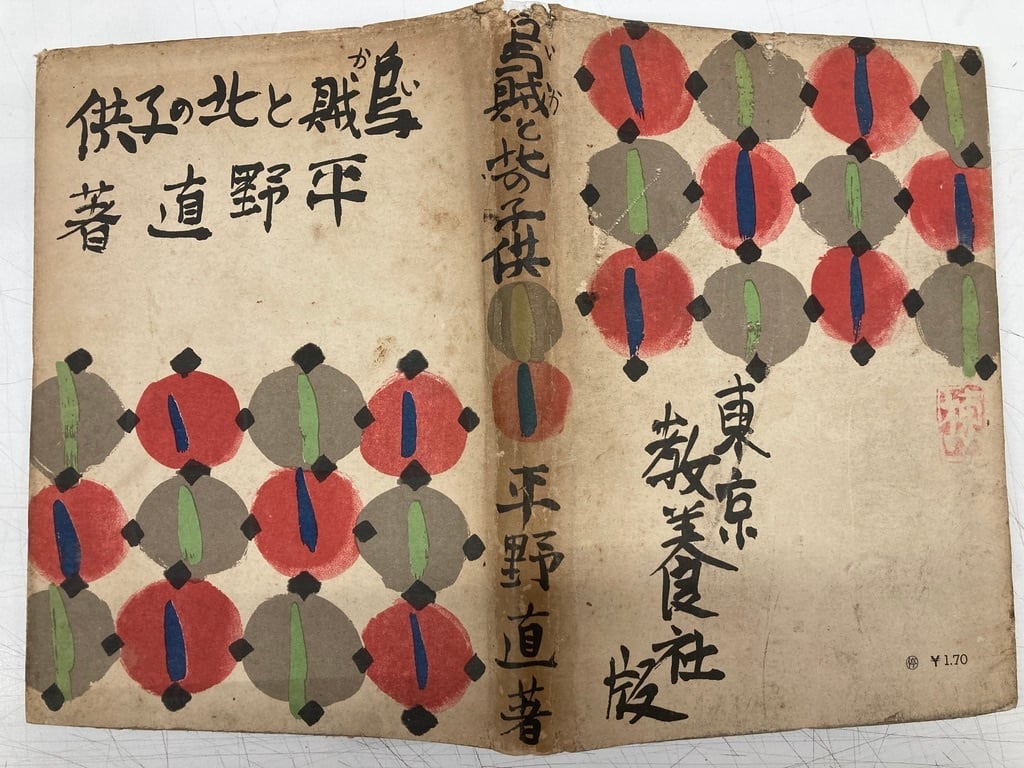 いか
烏賊と北の子供
平野直著
いか
烏賊と北の子供
平野直著
東京
教養社
版
¥1.70